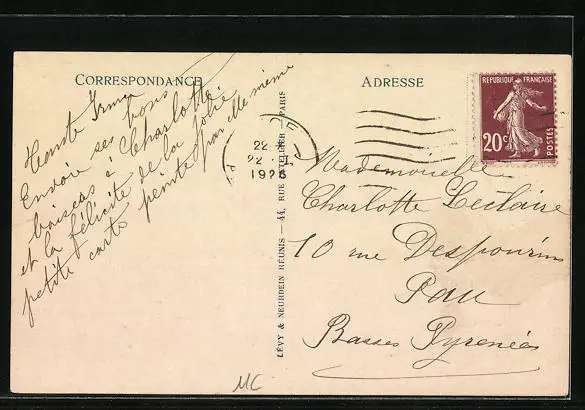 CORRESPONDANCE
Tante Irma
Envoie ses bons
baisers à Charlotte
et la félicite de la jolie
petite carte peinte par elle même
LÉVY & NEURDEIN RÉUNIS — 44, RUE LETELLIER, PARIS
ADRESSE
REPUBLIQUE FRANÇAISE
20c
POSTES
22
22
192
Mademoiselle
Charlotte Leclaire
10 rue Despourins
Pau
Basses Pyrenées
MC